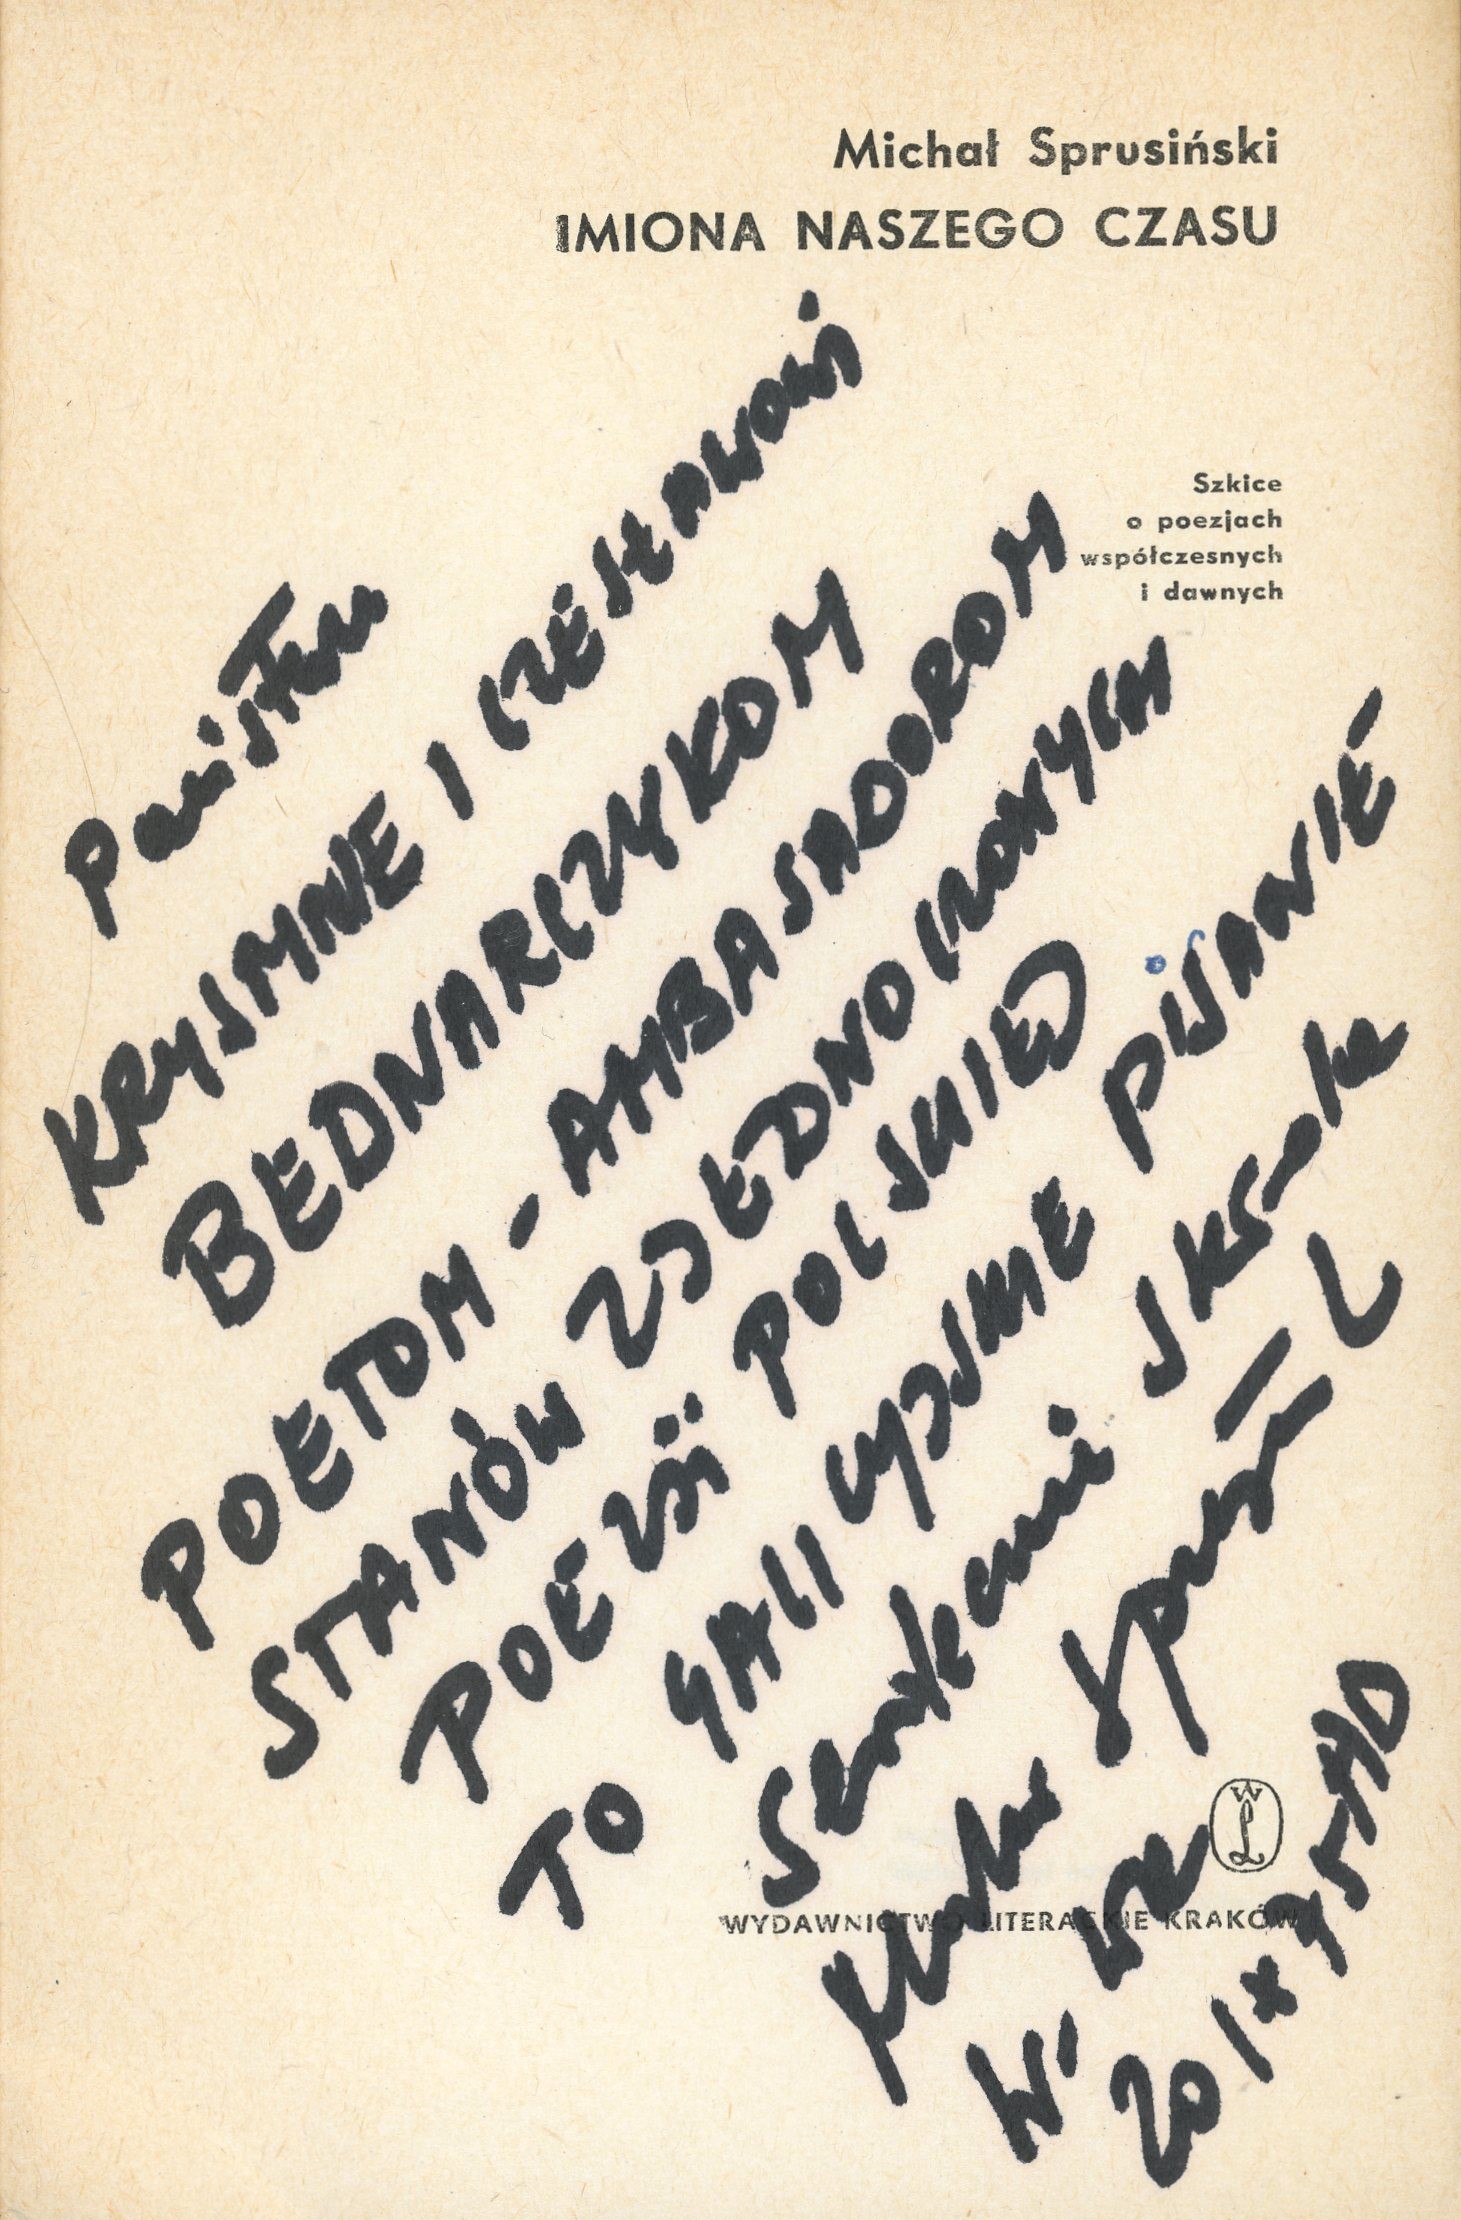 Michał Sprusiński
IMIONA NASZEGO CZASU
Szkice
o poezjach
współczesnych
i dawnych
Państwu
KRYSTYNIE I CZESŁAWOWI
BEDNARCZYKOM
POETOM – AMBASADOROM
STANÓW ZJEDNOCZONYCH
POEZJI POLSKIEJ
TO GALICYJSKIE PISANIE –
Serdecznie
Michał Sprusiński
W-
20 IX 75 AD
WL
WYDAWNICTWO LITERACKIE KRAKÓW